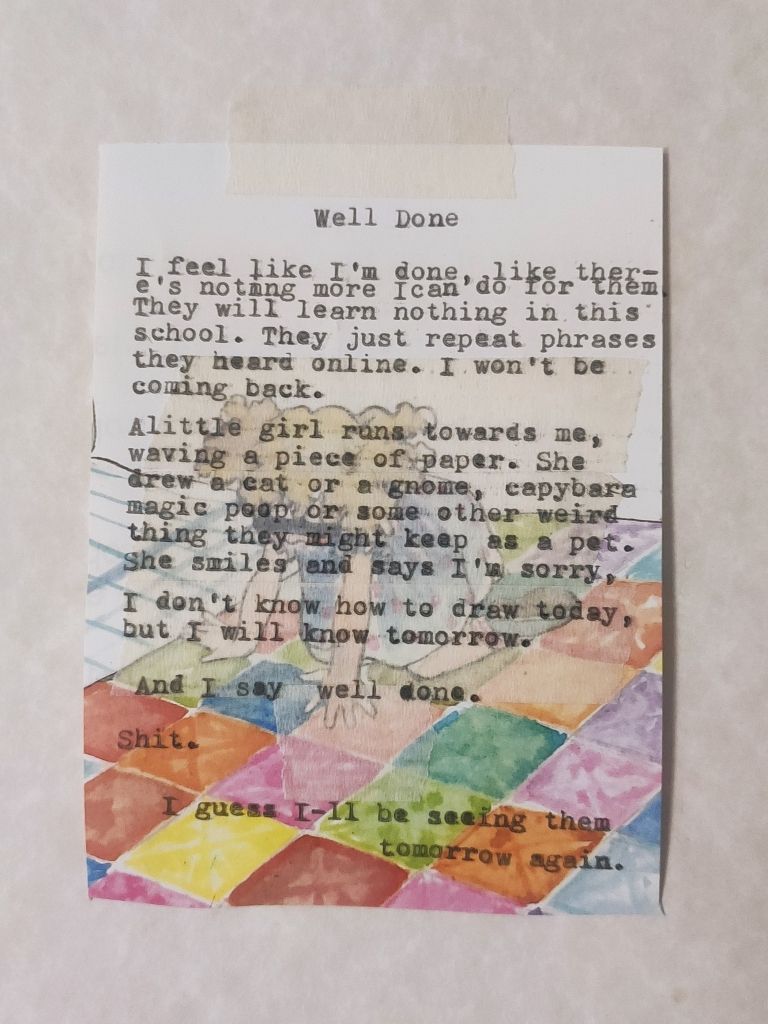 Well Done
I feel like I'm done, like ther-
e's notmng more Ican do for them
They will learn nothing in this
school. They just repeat phrases
they heard online. I won't be
coming back.
Alittle girl runs towards me,
waving a piece of paper. She
drew a cat or a gnome, capybara
magic poop or some other weird
thing they might keep as a pet.
She smiles and says I'm sorry,
I don't know how to draw today,
but I will know tomorrow.
And I say well done.
Shit.
I guess I-ll be seeing them
tomorrow again.